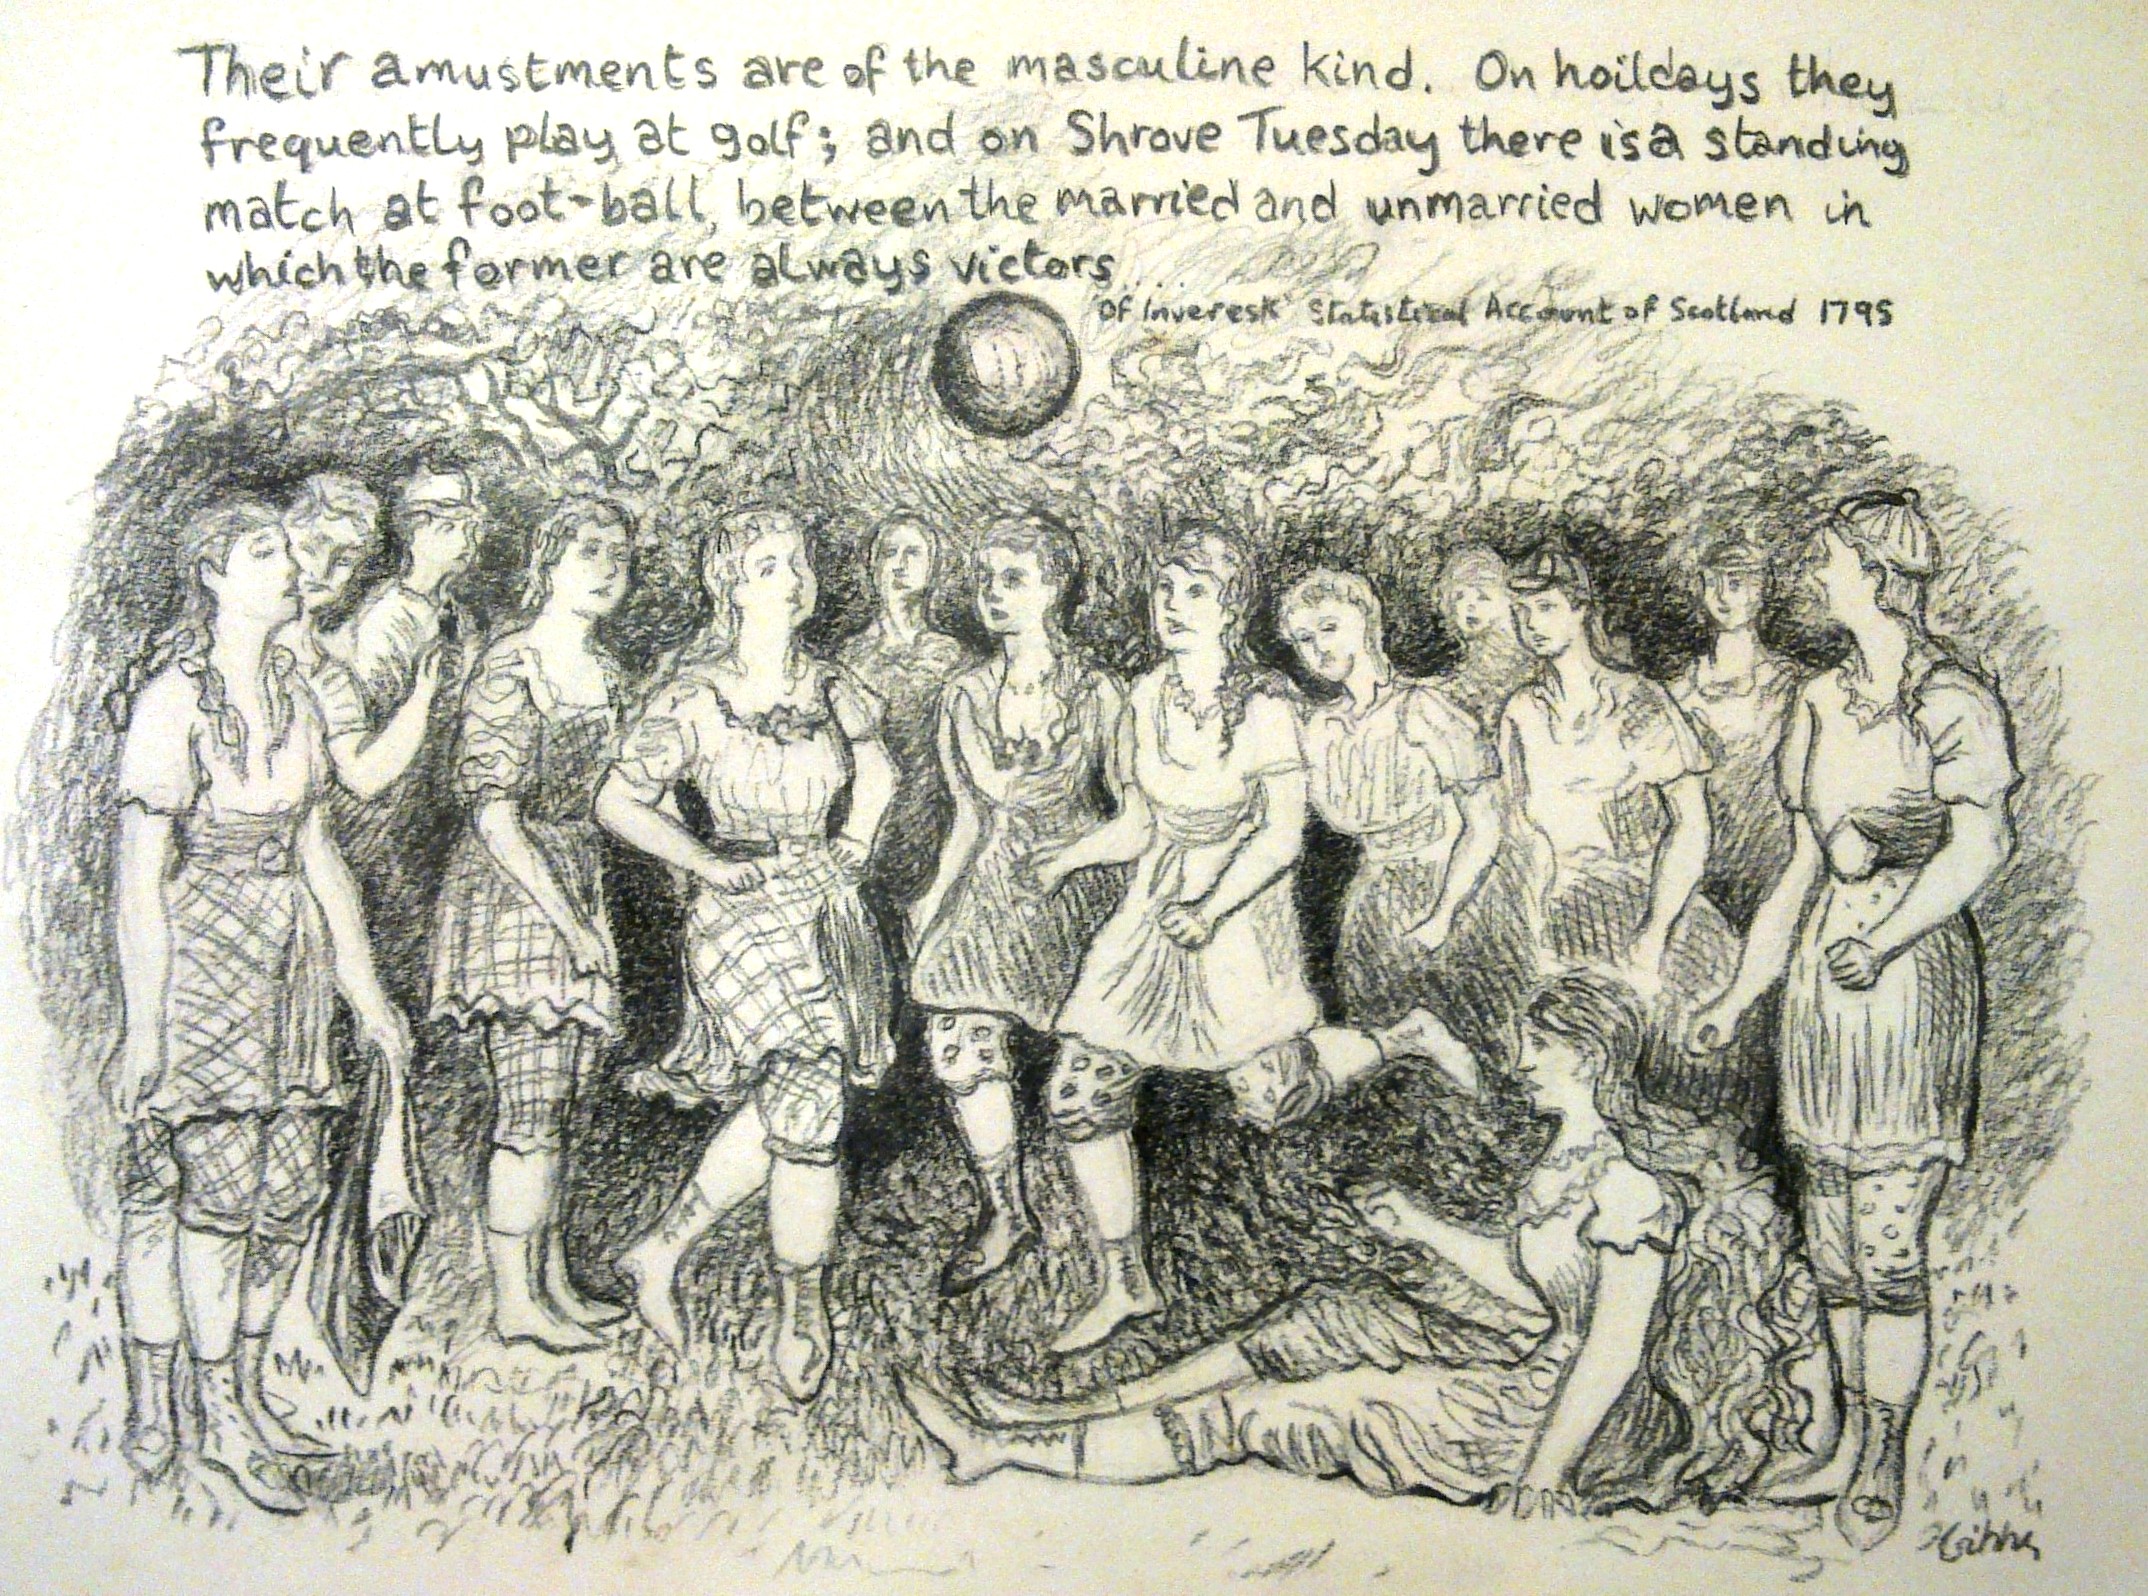 Their amustments are of the masculine kind. On hoildays they
frequently play at golf; and on Shrove Tuesday there is a standing
match at foot-ball, between the married and unmarried women in
which the former are always victors
of Inveresk Statistical Account of Scotland 1795